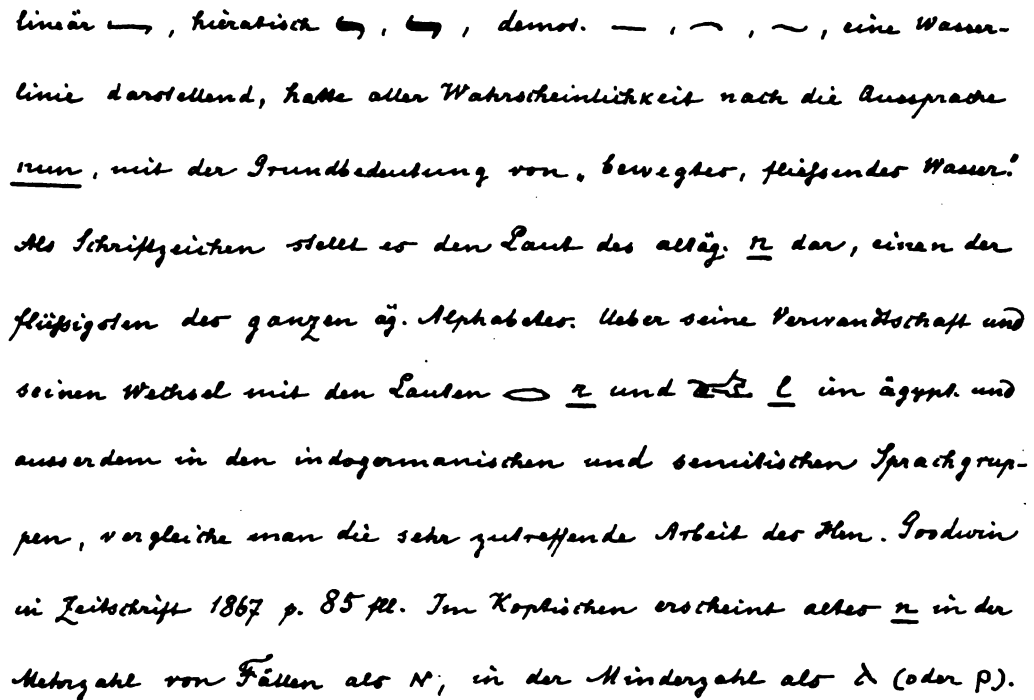 lineär, hieratisch, , demot. — , , , eine Wasser-
linie darstellend, hatte aller Wahrscheinlichkeit nach die Aussprache
nun, mit der Grundbedeutung von „bewegtes, fließendes Wasser."
Als Schriftzeichen stellt es den Laut des altäg. n dar, einen der
flüßigsten des ganzen äg. Alphabetes. Ueber seine Verwandtschaft und
seinen Wechsel mit den Lauten 𓂋 r und 𓃭 l im ägypt. und
ausserdem in den indogermanischen und semitischen Sprachgrup-
pen, vergleiche man die sehr zutreffende Arbeit des Hrn. Goodwin
in Zeitschrift 1867 p. 85 fll. Im Koptischen erscheint altes n in der
Mehrzahl von Fällen als ⲛ, in der Minderzahl als ⲗ (oder ⲣ).